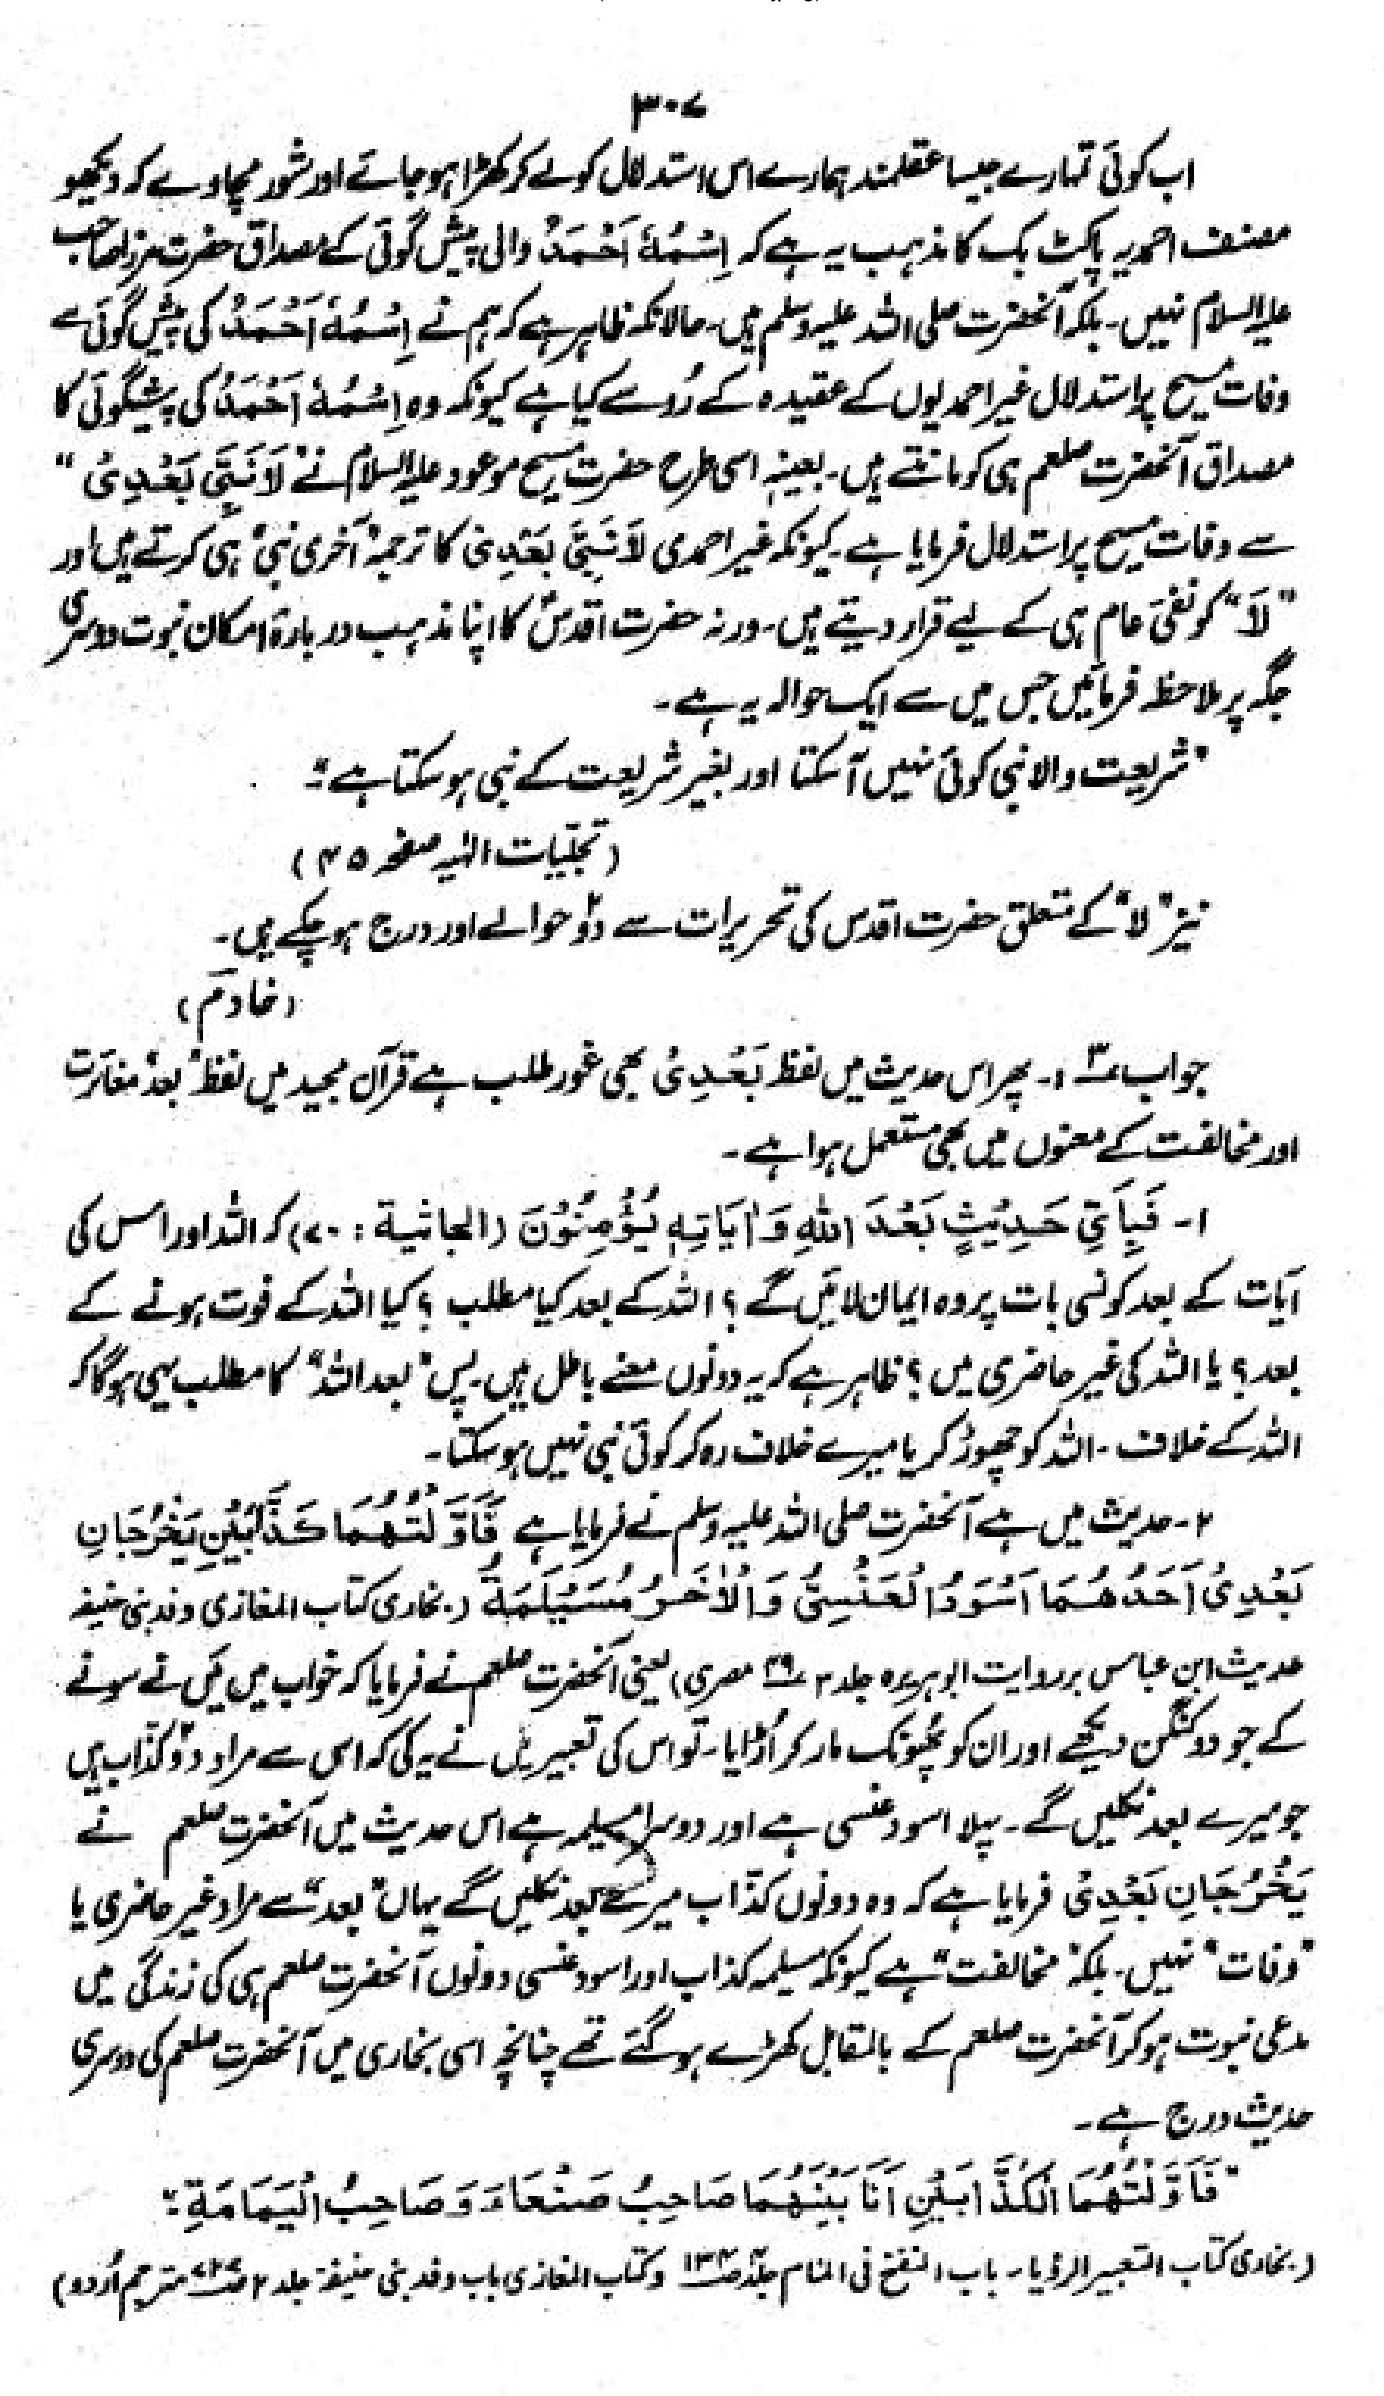 ۳۰۷
اب کوئی تمہارے جیسا عقلمند ہمارے اس استدلال کو لے کر کھڑا ہو جائے اور شور مچاوے کہ دیکھو
مصنف احمدیہ پاکٹ بک کا مذہب یہ ہے کہ اِسْمُهٗ اَحْمَدُ والی پیش گوئی کے مصداق حضرت مرزا صاحب
علیہ السلام نہیں۔ بلکہ آنحضرت صلی اللہ علیہ وسلم ہیں۔ حالانکہ ظاہر ہے کہ ہم نے اِسْمُهٗ اَحْمَدُ کی پیش گوئی سے
وفات مسیح پر استدلال غیر احمدیوں کے عقیدہ کے رُو سے کیا ہے کیونکہ وہ اِسْمُهٗ اَحْمَدُ کی پیشگوئی کا
مصداق آنحضرت صلعم ہی کو مانتے ہیں۔ بعینہٖ اسی طرح حضرت مسیح موعود علیہ السلام نے "لَا نَبِیَّ بَعْدِیْ"
سے وفات مسیح پر استدلال فرمایا ہے۔ کیونکہ غیر احمدی لَا نَبِیَّ بَعْدِیْ کا ترجمہ "آخری نبی" ہی کرتے ہیں اور
"لَا" کو نفی عام ہی کے لیے قرار دیتے ہیں۔ ورنہ حضرت اقدسؑ کا اپنا مذہب دربارۂ امکان نبوت دوسری
جگہ پر ملاحظہ فرمائیں جس میں سے ایک حوالہ یہ ہے۔
"شریعت والا نبی کوئی نہیں آسکتا اور بغیر شریعت کے نبی ہو سکتا ہے۔"
(تجلّیات الٰہیہ صفحہ ۲۵)
نیز "لا" کے متعلق حضرت اقدس کی تحریرات سے دو حوالے اور درج ہو چکے ہیں۔
(خادم)
جواب ۳:۔ پھر اس حدیث میں لفظ بَعْدِیْ بھی غور طلب ہے قرآن مجید میں لفظ "بعد" مغائرت
اور مخالفت کے معنوں میں بھی مستعمل ہوا ہے۔
۱۔ فَبِاَیِّ حَدِیْثٍ بَعْدَ اللّٰهِ وَاٰیَاتِهٖ یُؤْمِنُوْنَ (الجاثیة : ۷۰) کہ اللہ اور اس کی
آیات کے بعد کونسی بات پر وہ ایمان لائیں گے؟ اللہ کے بعد کیا مطلب؟ کیا اللہ کے فوت ہونے کے
بعد؟ یا اللہ کی غیر حاضری میں؟ ظاہر ہے کہ یہ دونوں معنے باطل ہیں۔ پس "بعد اللہ" کا مطلب یہی ہوگا کہ
اللہ کے خلاف۔ اللہ کو چھوڑ کر یا میرے خلاف رہ کر کوئی نبی نہیں ہو سکتا۔
۲۔ حدیث میں ہے آنحضرت صلی اللہ علیہ وسلم نے فرمایا ہے فَاَوَّلْتُهُمَا كَذَّابَیْنِ یَخْرُجَانِ
بَعْدِیْ اَحَدُهُمَا اَسْوَدُ الْعَنْسِیُّ وَالْاٰخَرُ مُسَیْلَمَةُ (بخاری کتاب المغازی وفد بنی حنیفہ
حدیث ابن عباس بر روایت ابو ہریرہ جلد ۳ ص۴۹ مصری) یعنی آنحضرت صلعم نے فرمایا کہ خواب میں مَیں نے سونے
کے جو دو کنگن دیکھے اور ان کو پھونک مار کر اُڑایا۔ تو اس کی تعبیر میں نے یہ کی کہ اس سے مراد دو کذّاب ہیں
جو میرے بعد نکلیں گے۔ پہلا اسود عنسی ہے اور دوسرا مسیلمہ ہے اس حدیث میں آنحضرت صلعم نے
یَخْرُجَانِ بَعْدِیْ فرمایا ہے کہ وہ دونوں کذّاب میرے بعد نکلیں گے یہاں "بعد" سے مراد غیر حاضری یا
"وفات" نہیں۔ بلکہ "مخالفت" ہے کیونکہ مسیلمہ کذاب اور اسود عنسی دونوں آنحضرت صلعم ہی کی زندگی میں
مدعی نبوت ہو کر آنحضرت صلعم کے بالمقابل کھڑے ہو گئے تھے چنانچہ اسی بخاری میں آنحضرت صلعم کی دوسری
حدیث درج ہے۔
"فَاَوَّلْتُهُمَا الْكَذَّابَیْنِ اَنَا بَیْنَهُمَا صَاحِبُ صَنْعَاءَ وَصَاحِبُ الْیَمَامَةِ۔"
(بخاری کتاب التعبیر الرؤیا۔ باب النفخ فی المنام جلد وکتاب المغازی باب وفد بنی حنیفة جلد ۲ مترجم اُردو)